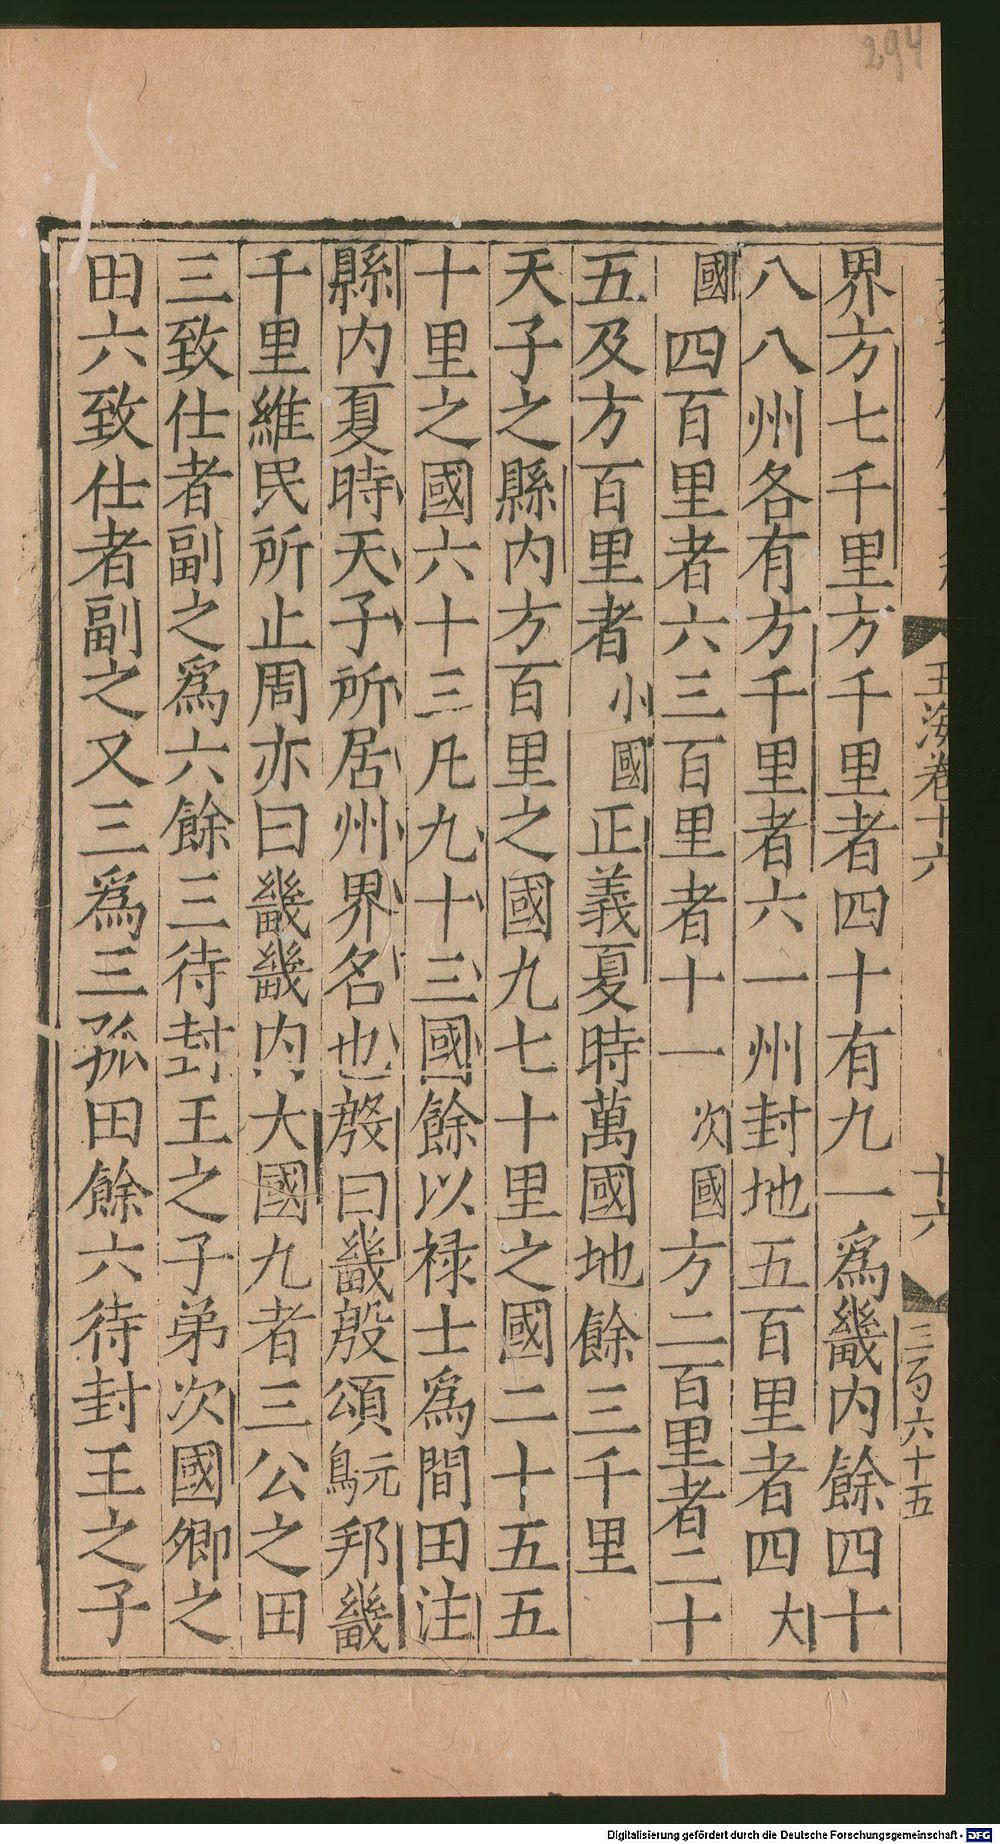 294
玉海卷十六
十六
三百六十五
界方七千里方千里者四十有九一爲畿内餘四十
八八州各有方千里者六一州封地五百里者四大
國四百里者六三百里者十一次國方二百里者二十
五及方百里者小國正義夏時萬國地餘三千里
天子之縣内方百里之國九七十里之國二十五五
十里之國六十三凡九十三國餘以禄士爲間田注
縣内夏時天子所居州界名也殷曰畿殷頌𪀚邦畿
千里維民所止周亦曰畿畿内大國九者三公之田
三致仕者副之爲六餘三待封王之子弟次國卿之
田六致仕者副之又三爲三孤田餘六待封王之子
Digitalisierung gefördert durch die Deutsche Forschungsgemeinschaft - DFG